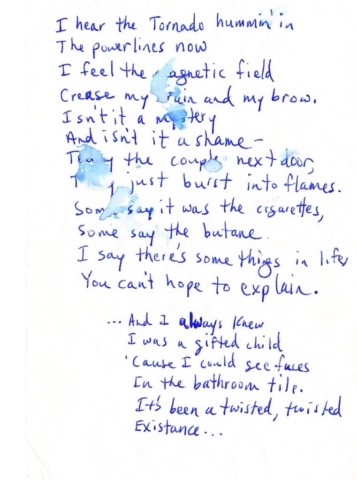 I hear the Tornado hummin' in
The powerlines now
I feel the magnetic field
Crease my brain and my brow.
Isn't it a mystery
And isn't it a shame-
They the couple next door,
They just burst into flames.
Some say it was the cigarettes,
Some say the butane.
I say there's some things in life,
You can't hope to explain.
...And I always knew
I was a gifted child
'Cause I could see faces
In the bathroom tile.
It's been a twisted, twisted
Existance...